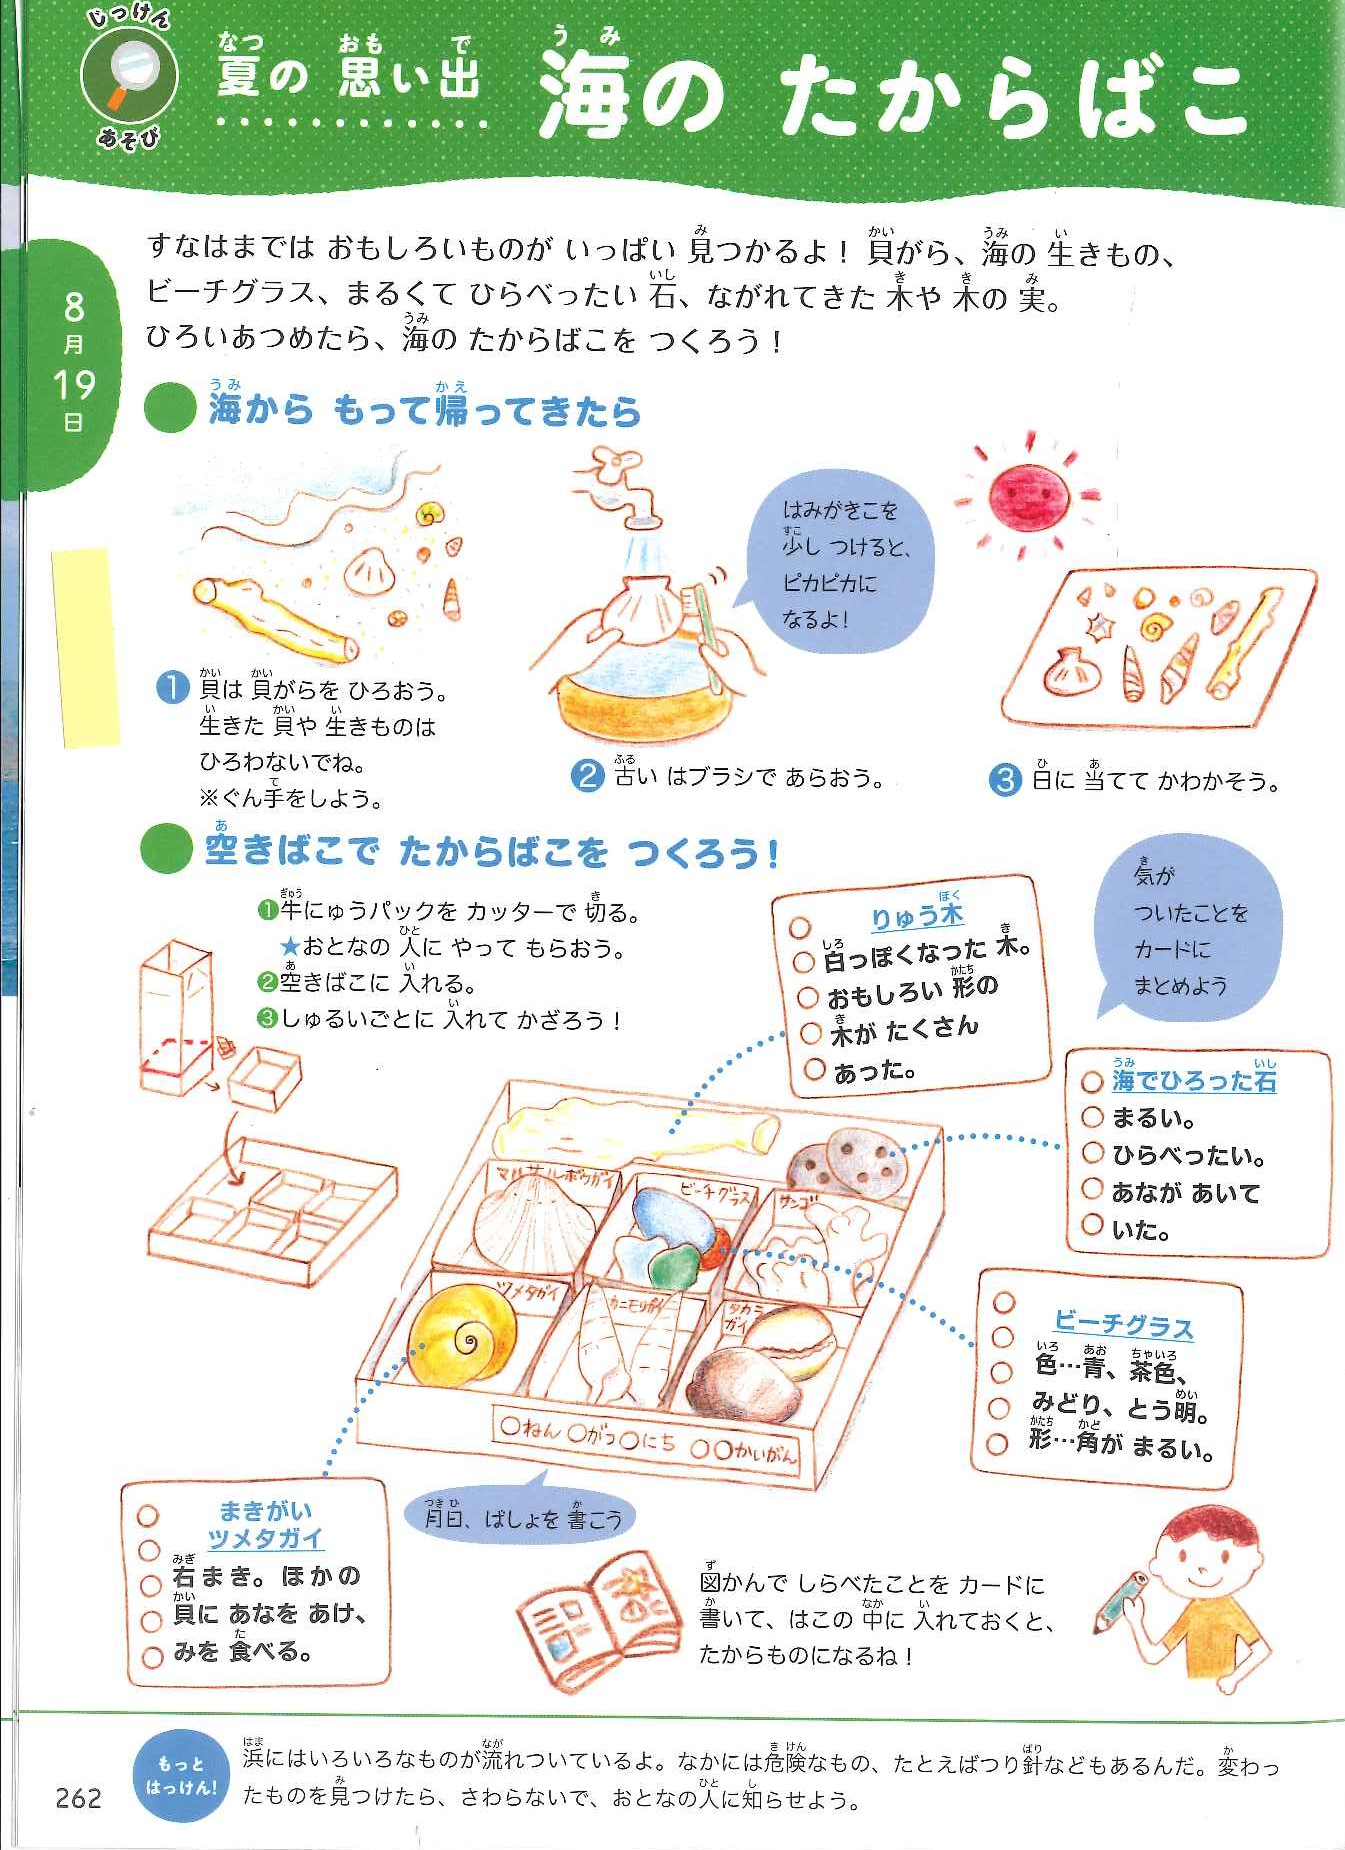 じっけん
あそび
夏の 思い出 海の たからばこ
8
月
19
日
すなはまでは おもしろいものが いっぱい 見つかるよ！ 貝がら、海の 生きもの、
ビーチグラス、まるくて ひらべったい 石、ながれてきた 木や 木の 実。
ひろいあつめたら、海の たからばこを つくろう！
海から もって帰ってきたら
はみがきこを
少し つけると、
ピカピカに
なるよ！
1 貝は 貝がらを ひろおう。
生きた 貝や 生きものは
ひろわないでね。
※ぐん手をしよう。
2 古い はブラシで あらおう。
3 日に 当てて かわかそう。
空きばこで たからばこを つくろう！
1牛にゅうパックを カッターで 切る。
★おとなの 人に やって もらおう。
2空きばこに 入れる。
3しゅるいごとに 入れて かざろう！
りゅう木
白っぽくなった 木。
おもしろい 形の
木が たくさん
あった。
気が
ついたことを
カードに
まとめよう
海でひろった石
まるい。
ひらべったい。
あなが あいて
いた。
マルサルボウガイ
ビーチグラス
サンゴ
ツメタガイ
カニモリガイ
タカラ
ガイ
○ねん ○がつ○にち ○○かいがん
ビーチグラス
色…青、茶色、
みどり、とう明。
形…角が まるい。
まきがい
ツメタガイ
右まき。ほかの
貝に あなを あけ、
みを 食べる。
月日、ばしょを 書こう
図かんで しらべたことを カードに
書いて、はこの 中に 入れておくと、
たからものになるね！
もっと
はっけん！
浜にはいろいろなものが流れついているよ。なかには危険なもの、たとえばつり針などもあるんだ。変わっ
たものを見つけたら、さわらないで、おとなの人に知らせよう。
262